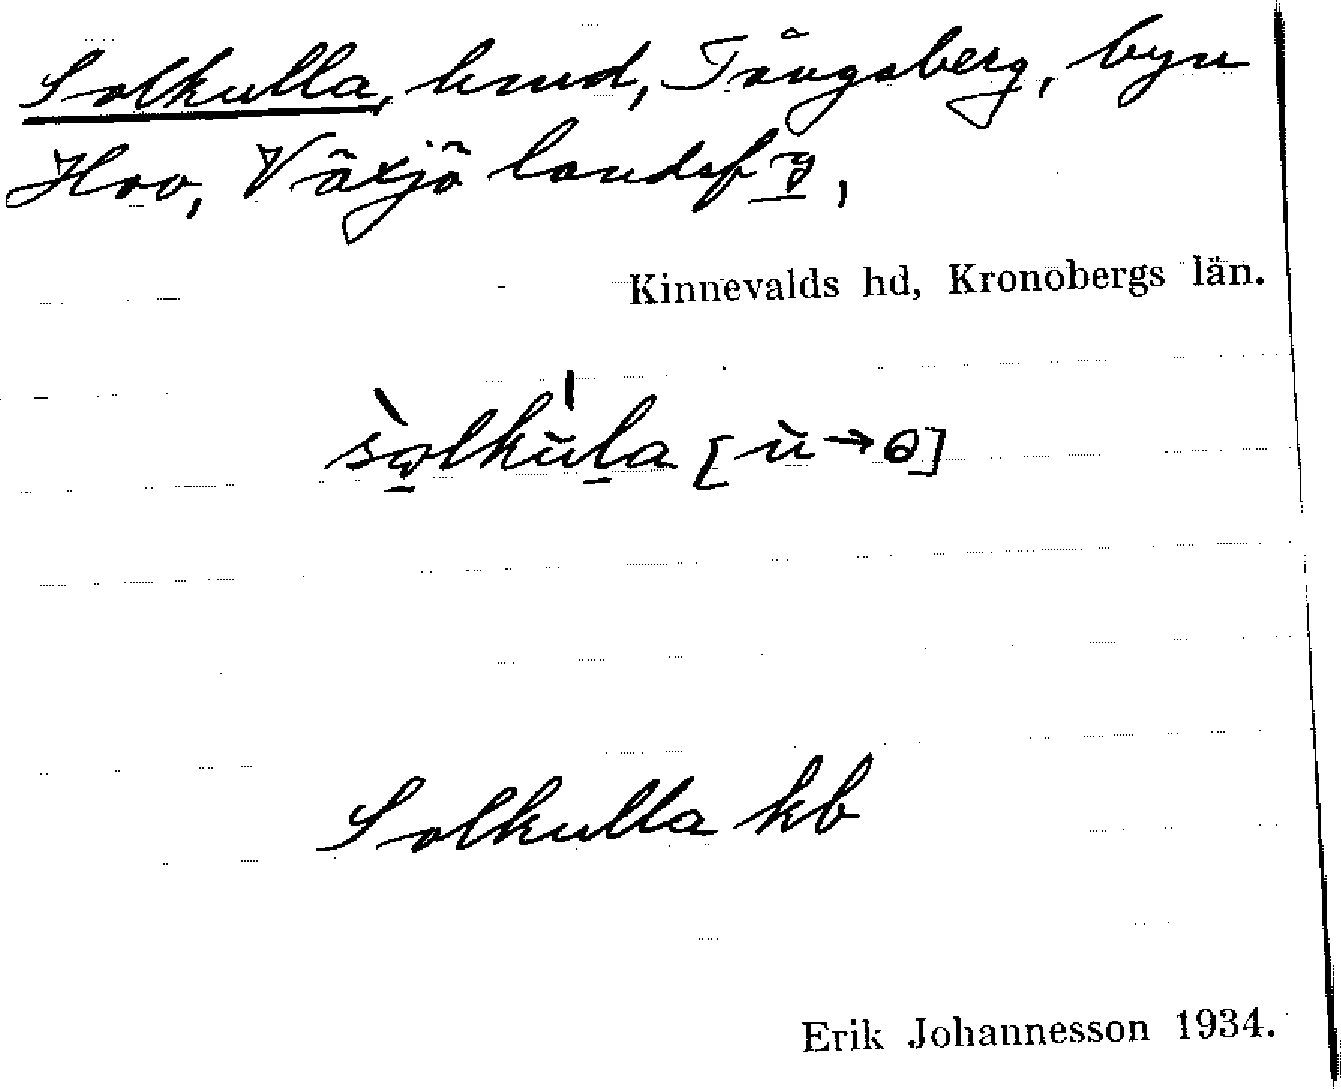 Solkulla, hmd, Tångsberg, byn
Hov, Växjö landsf y,
Kinnevalds hd, Kronobergs län.
Solkulla kb
Erik Johannesson 1934.